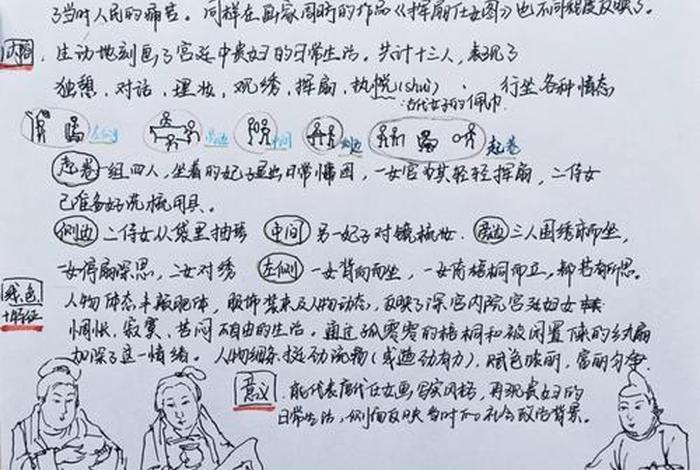 了当时人民的痛苦。同样在画家周昉的作品《挥扇仕女图》也不同程度反映了。
内容 生动地刻画了宫廷中贵妇的日常生活。共计十三人,表现了
独憩,对话,理妆,观绣,挥扇,执帨(shuì) 行坐各种情态
古代女子的佩巾
左侧 旁边 中间 侧边 起卷
起卷 一组四人,坐着的妃子显出日常慵困,一女官为其轻轻挥扇,二侍女
已准备好洗梳用具。
侧边 二侍女从袋里抽琴 中间 另一妃子对镜梳妆. 旁边 三人围绣床而坐,
一女停扇深思,二女对绣 左侧 一女背向而坐,一女倚梧桐而立,都若有所思。
特征 人物体态丰腴肥体,服饰装束及人物动态,反映了深宫内院宫廷妇女
惆怅、寂寞、苦闷不自由的生活。通过孤零零的梧桐和被闲置床的纨扇
加深了这一情绪。人物细条挺劲流畅(或遒劲有力),赋色艳丽,富丽匀净
意义 能代表唐代仕女画写实风格,再现贵妇的
日常生活,侧面反映当时的社会政治背景。